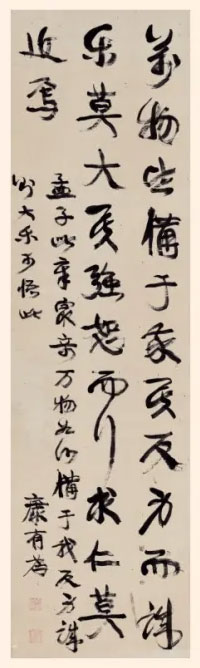 萬物皆備于我矣反身而誠
樂莫大矣強恕而行求仁莫
近焉
孟子此章最奇万物如何備于我反身誠
則大樂可悟此
康有為